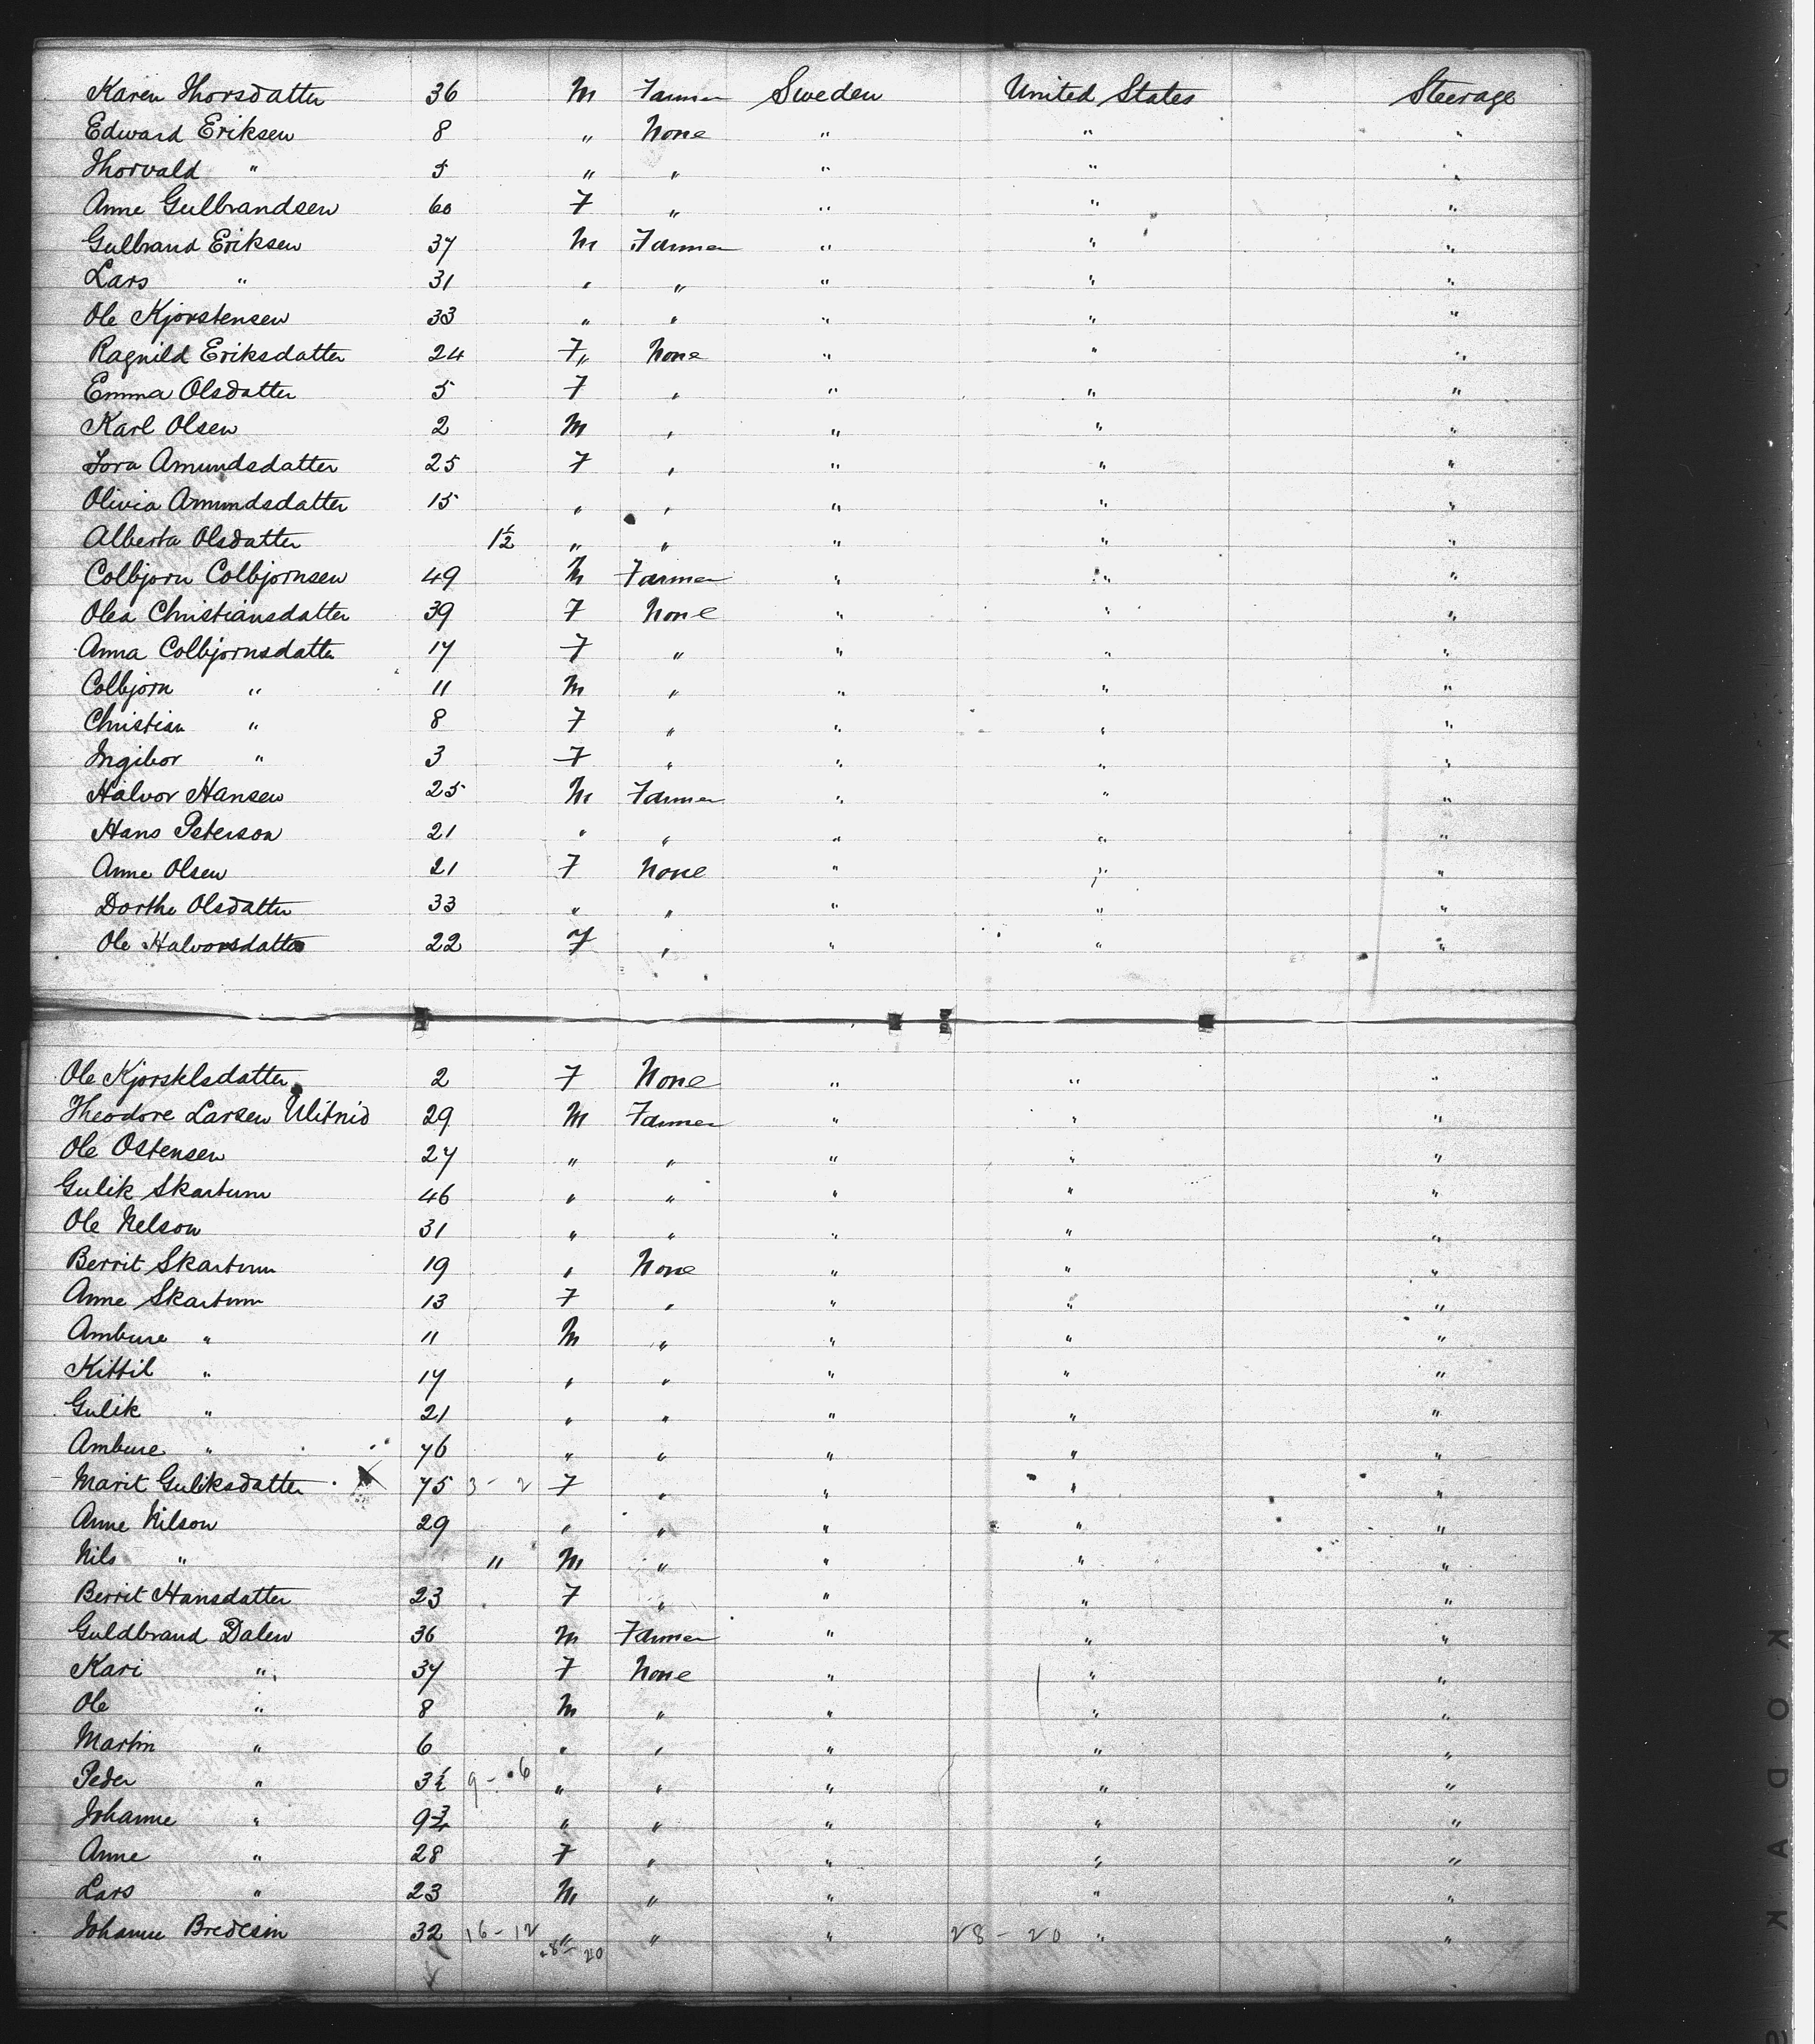 Karen Thorsdatter 36 M Farmer Sweden United States Steerage
Edward Eriksen 8 " None " " "
Thorvald " 5 " " " " "
Anne Gulbrandsen 60 F " " " "
Gulbrand Eriksen 37 M Farmer " " "
Lars " 31 " " " " "
Ole Kjorstensen 33 " " " " "
Ragnild Eriksdatter 24 F " None " " "
Emma Olsdatter 5 F " " " "
Karl Olsen 2 M " " " "
Lora Amundsdatter 25 F " " " "
Olivia Amundsdatter 15 " " " " "
Alberta Olsdatter 1½ " " " " "
Colbjorn Colbjornsen 49 M Farmer " " "
Olea Christiansdatter 39 F None " " "
Anna Colbjornsdatter 17 F " " " "
Colbjorn " 11 M " " " "
Christian " 8 F " " " "
Ingibor " 3 F " " " "
Halvor Hansen 25 M Farmer " " "
Hans Peterson 21 " " " " "
Anne Olsen 21 F None " " "
Dorthe Olsdatter 33 " " " " "
Ole Halvorsdatter 22 F " " " "
Ole Kjorsklsdatter 2 F None " " "
Theodore Larsen Ulitnid 29 M Farmer " " "
Ole Ostensen 27 " " " " "
Gulik Skartum 46 " " " " "
Ole Nelson 31 " " " " "
Berrit Skartum 19 " None " " "
Anne Skartum 13 F " " " "
Ambure " 11 M " " " "
Kittil " 17 " " " " "
Gulik " 21 " " " " "
Ambure " 76 " " " " "
Marit Guliksdatter 75 3 - 2 F " " " "
Anne Nilson 29 " " " " "
Nils " " M " " " "
Berrit Hansdatter 23 F " " " "
Guldbrand Dalen 36 M Farmer " " "
Kari " 37 F None " " "
Ole " 8 M " " " "
Martin " 6 " " " " "
Peder " 3½ 9 - 6 " " " " "
Johanne " 9¾ " " " " "
Anne " 28 F " " " "
Lars " 23 M " " " "
Johanne Bredesin 32 16 - 12 " " " 28 - 20 " "
28 - 20
KODAK
S